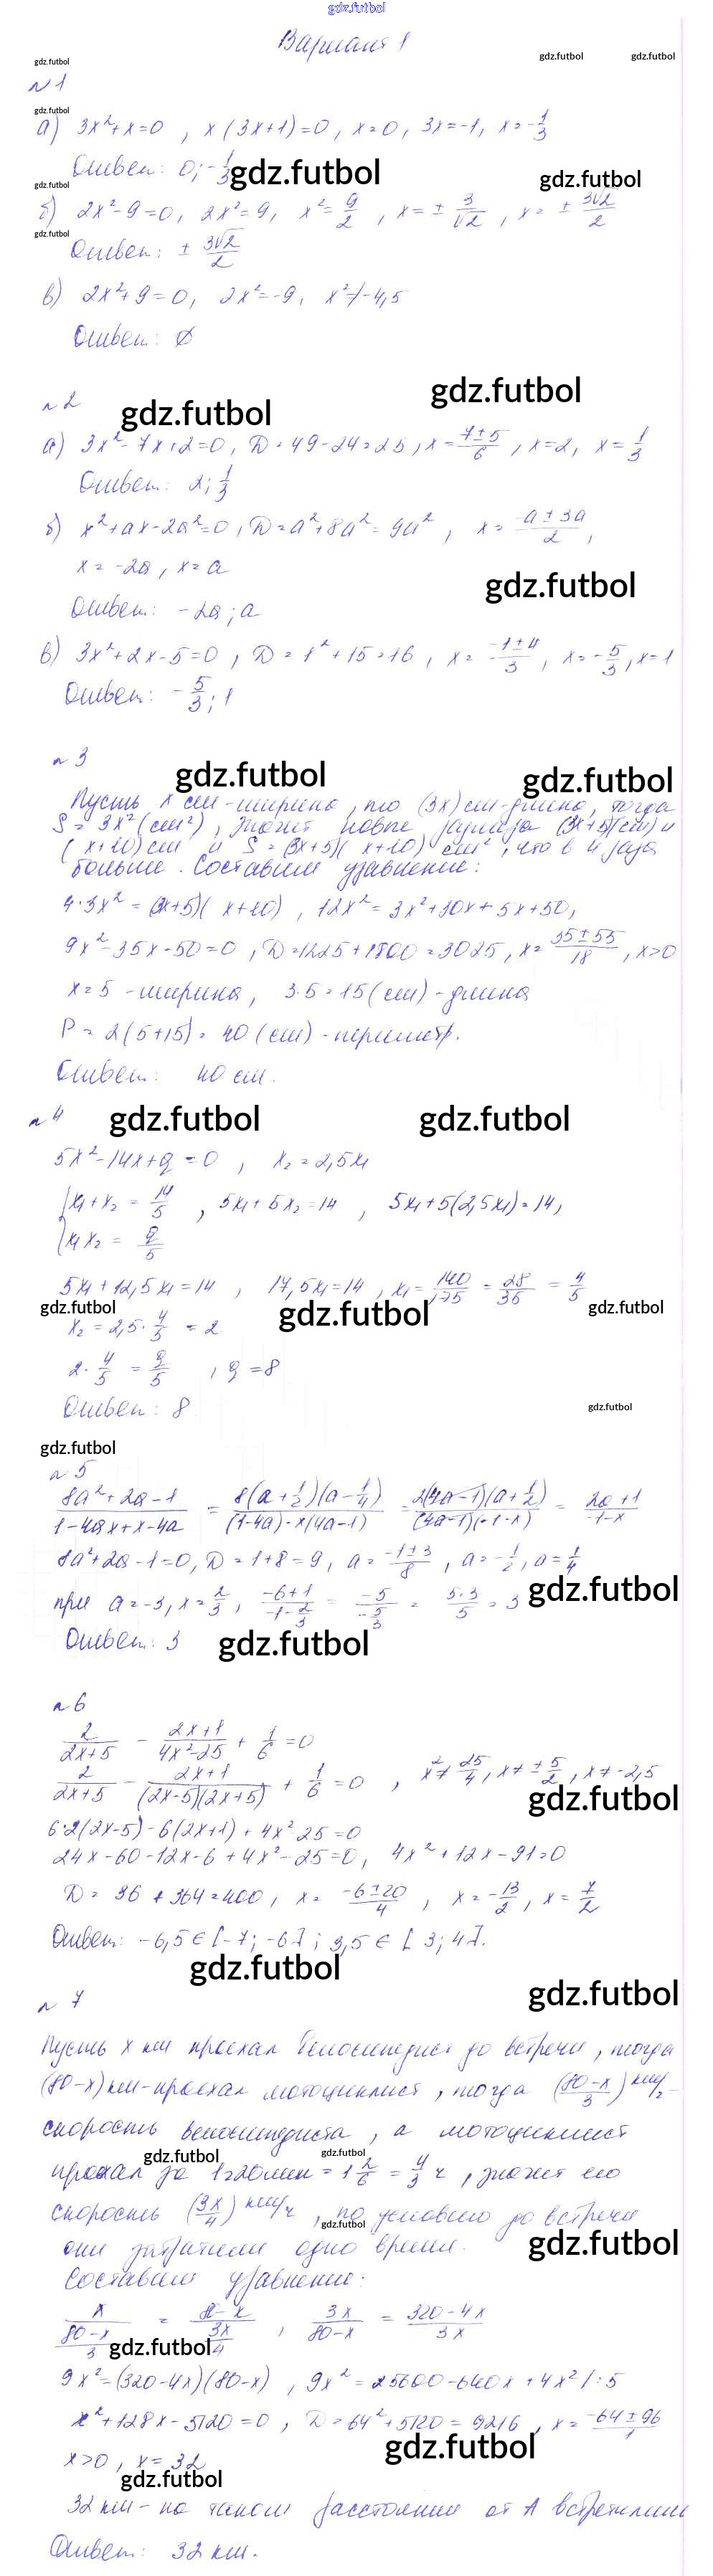 gdz.futbol
Вариант 1
gdz.futbol gdz.futbol gdz.futbol
№1
gdz.futbol
а) 3x²+x=0 , x(3x+1)=0, x=0, 3x=-1, x=-1/3
Ответ: 0; -1/3
gdz.futbol gdz.futbol
gdz.futbol
б) 2x²-9=0, 2x²=9, x²=9/2 , x=± 3/√2 , x=± 3√2/2
gdz.futbol
Ответ: ± 3√2/2
в) 2x²+9=0, 2x²=-9, x²≠-4,5
Ответ: ∅
gdz.futbol
№2
gdz.futbol
а) 3x²-7x+2=0, D=49-24=25, x=(7±5)/6 , x=2, x=1/3
Ответ: 2; 1/3
б) x²+ax-2a²=0, D=a²+8a²=9a² , x=(-a±3a)/2 ,
x=-2a, x=a
gdz.futbol
Ответ: -2a; a
в) 3x²+2x-5=0 , D=1²+15=16 , x=(-1±4)/3 , x=-5/3, x=1
Ответ: -5/3; 1
№3
gdz.futbol gdz.futbol
Пусть x см-ширина, то (3x)см-длина, тогда
S=3x²(см²), значит новые размеры (3x+5)(см) и
(x+10)см и S=(3x+5)(x+10) см², что в 4 раза
больше. Составим уравнение:
4·3x²=(3x+5)(x+10) , 12x²=3x²+30x+5x+50,
9x²-35x-50=0 , D=1225+1800=3025, x=(35±55)/18 , x>0
x=5 -ширина, 3·5=15(см)-длина
P=2(5+15)=40(см)-периметр.
Ответ: 40 см.
№4
gdz.futbol gdz.futbol
5x²-14x+q=0 , x₂=2,5x₁
{x₁+x₂=14/5 , 5x₁+5x₂=14 , 5x₁+5(2,5x₁)=14,
{x₁x₂=q/5
5x₁+12,5x₁=14 , 17,5x₁=14 , x₁=140/175=28/35=4/5
gdz.futbol gdz.futbol gdz.futbol
x₂=2,5·4/5=2
2·4/5=q/5 , q=8
Ответ: 8
gdz.futbol
gdz.futbol
№5
(8a²+2a-1)/(1-4ax+x-4a) = 8(a+1/2)(a-1/4)/((1-4a)-x(4a-1)) = 2(4a-1)(a+1/2)/((4a-1)(-1-x)) = (2a+1)/(-1-x)
8a²+2a-1=0, D=1+8=9, a=(-1±3)/8 , a=-1/2, a=1/4
gdz.futbol
при a=-3, x=2/3, (-6+1)/(-1-2/3) = -5/(-5/3) = 5·3/5 = 3
Ответ: 3
gdz.futbol
№6
2/(2x+5) - (2x+1)/(4x²-25) + 1/6 =0
2/(2x+5) - (2x+1)/((2x-5)(2x+5)) + 1/6 =0 , x²≠25/4, x≠±5/2, x≠-2,5
gdz.futbol
6·2(2x-5)-6(2x+1)+4x²25=0
24x-60-12x-6+4x²-25=0, 4x²+12x-91=0
D=36+364=400, x=(-6±20)/4 , x=-13/2, x=7/2
Ответ: -6,5∈[-7; -6]; 3,5∈[3; 4].
gdz.futbol
gdz.futbol
№7
Пусть x км проехал велосипедист до встречи, тогда
(80-x)км-проехал мотоциклист, тогда ((80-x)/3) км/ч-
скорость велосипедиста, а мотоциклист
gdz.futbol gdz.futbol
проехал за 1ч20мин=1 2/6=4/3 ч, значит его
скорость (3x/4) км/ч, по условию до встречи
gdz.futbol
они затратили одно время.
gdz.futbol
Составим уравнение:
x/((80-x)/3) = (80-x)/(3x/4) , 3x/(80-x) = (320-4x)/3x
gdz.futbol
9x²=(320-4x)(80-x) , 9x²=25600-640x+4x²/:5
x²+128x-5120=0 , D=64²+5120=9216, x=(-64±96)/1
gdz.futbol
x>0, x=32
gdz.futbol
32 км-на таком расстоянии от A встретились
Ответ: 32 км.